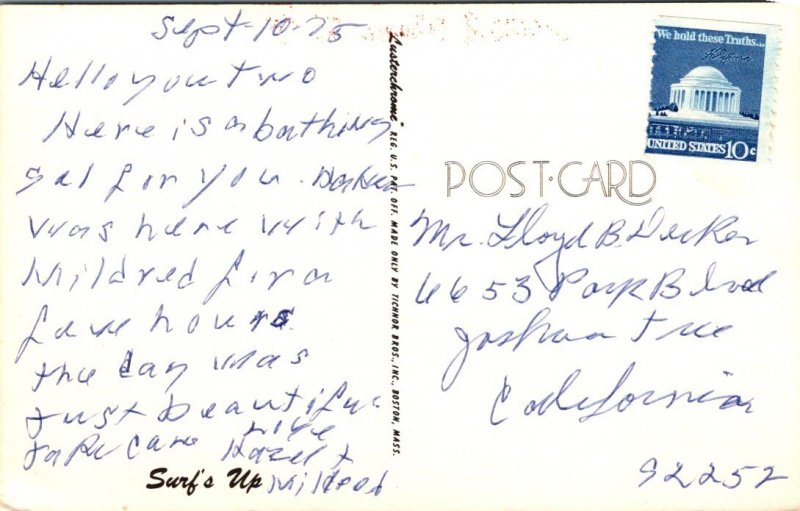 Sept-10-75
Hello you two
Here is a bathing
gal for you.
was here with
Mildred for a
fave hours
the day was
just beautiful
take care Love
Hazel +
Mildred
Surf's Up
Lusterchrome" REG. U.S. PAT. OFF. MADE ONLY BY TICHNOR BROS., INC., BOSTON, MASS.
We hold these Truths...
UNITED STATES 10c
POST-CARD
Mr. Lloyd B. Decker
6653 Park Blvd
Joshua Tree
California
92252